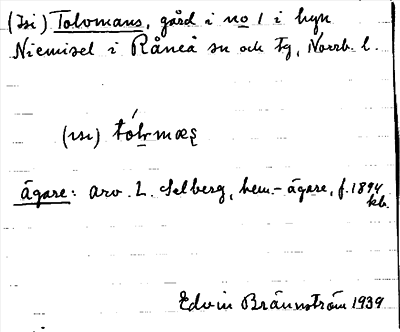 (Isi) Tolvmans, gård i no 1 i byn
Niemisel i Råneå sn och tg, Norrb. l.
(ɪsɪ)
ägare: arv. L. Selberg, hem.-ägare, f. 1894
kb.
Edvin Brännström 1939